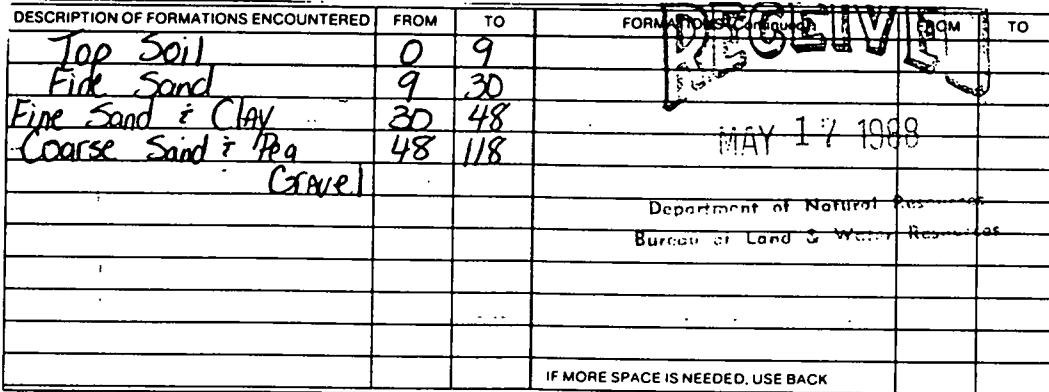 DESCRIPTION OF FORMATIONS ENCOUNTERED FROM TO FORMATIONS (Continued) FROM TO
RECEIVED
Top Soil 0 9
Fine Sand 9 30
Fine Sand & Clay 30 48
Coarse Sand & Pea 48 118
Gravel
MAY 17 1988
Department of Natural Resources
Bureau of Land & Water Resources
IF MORE SPACE IS NEEDED, USE BACK